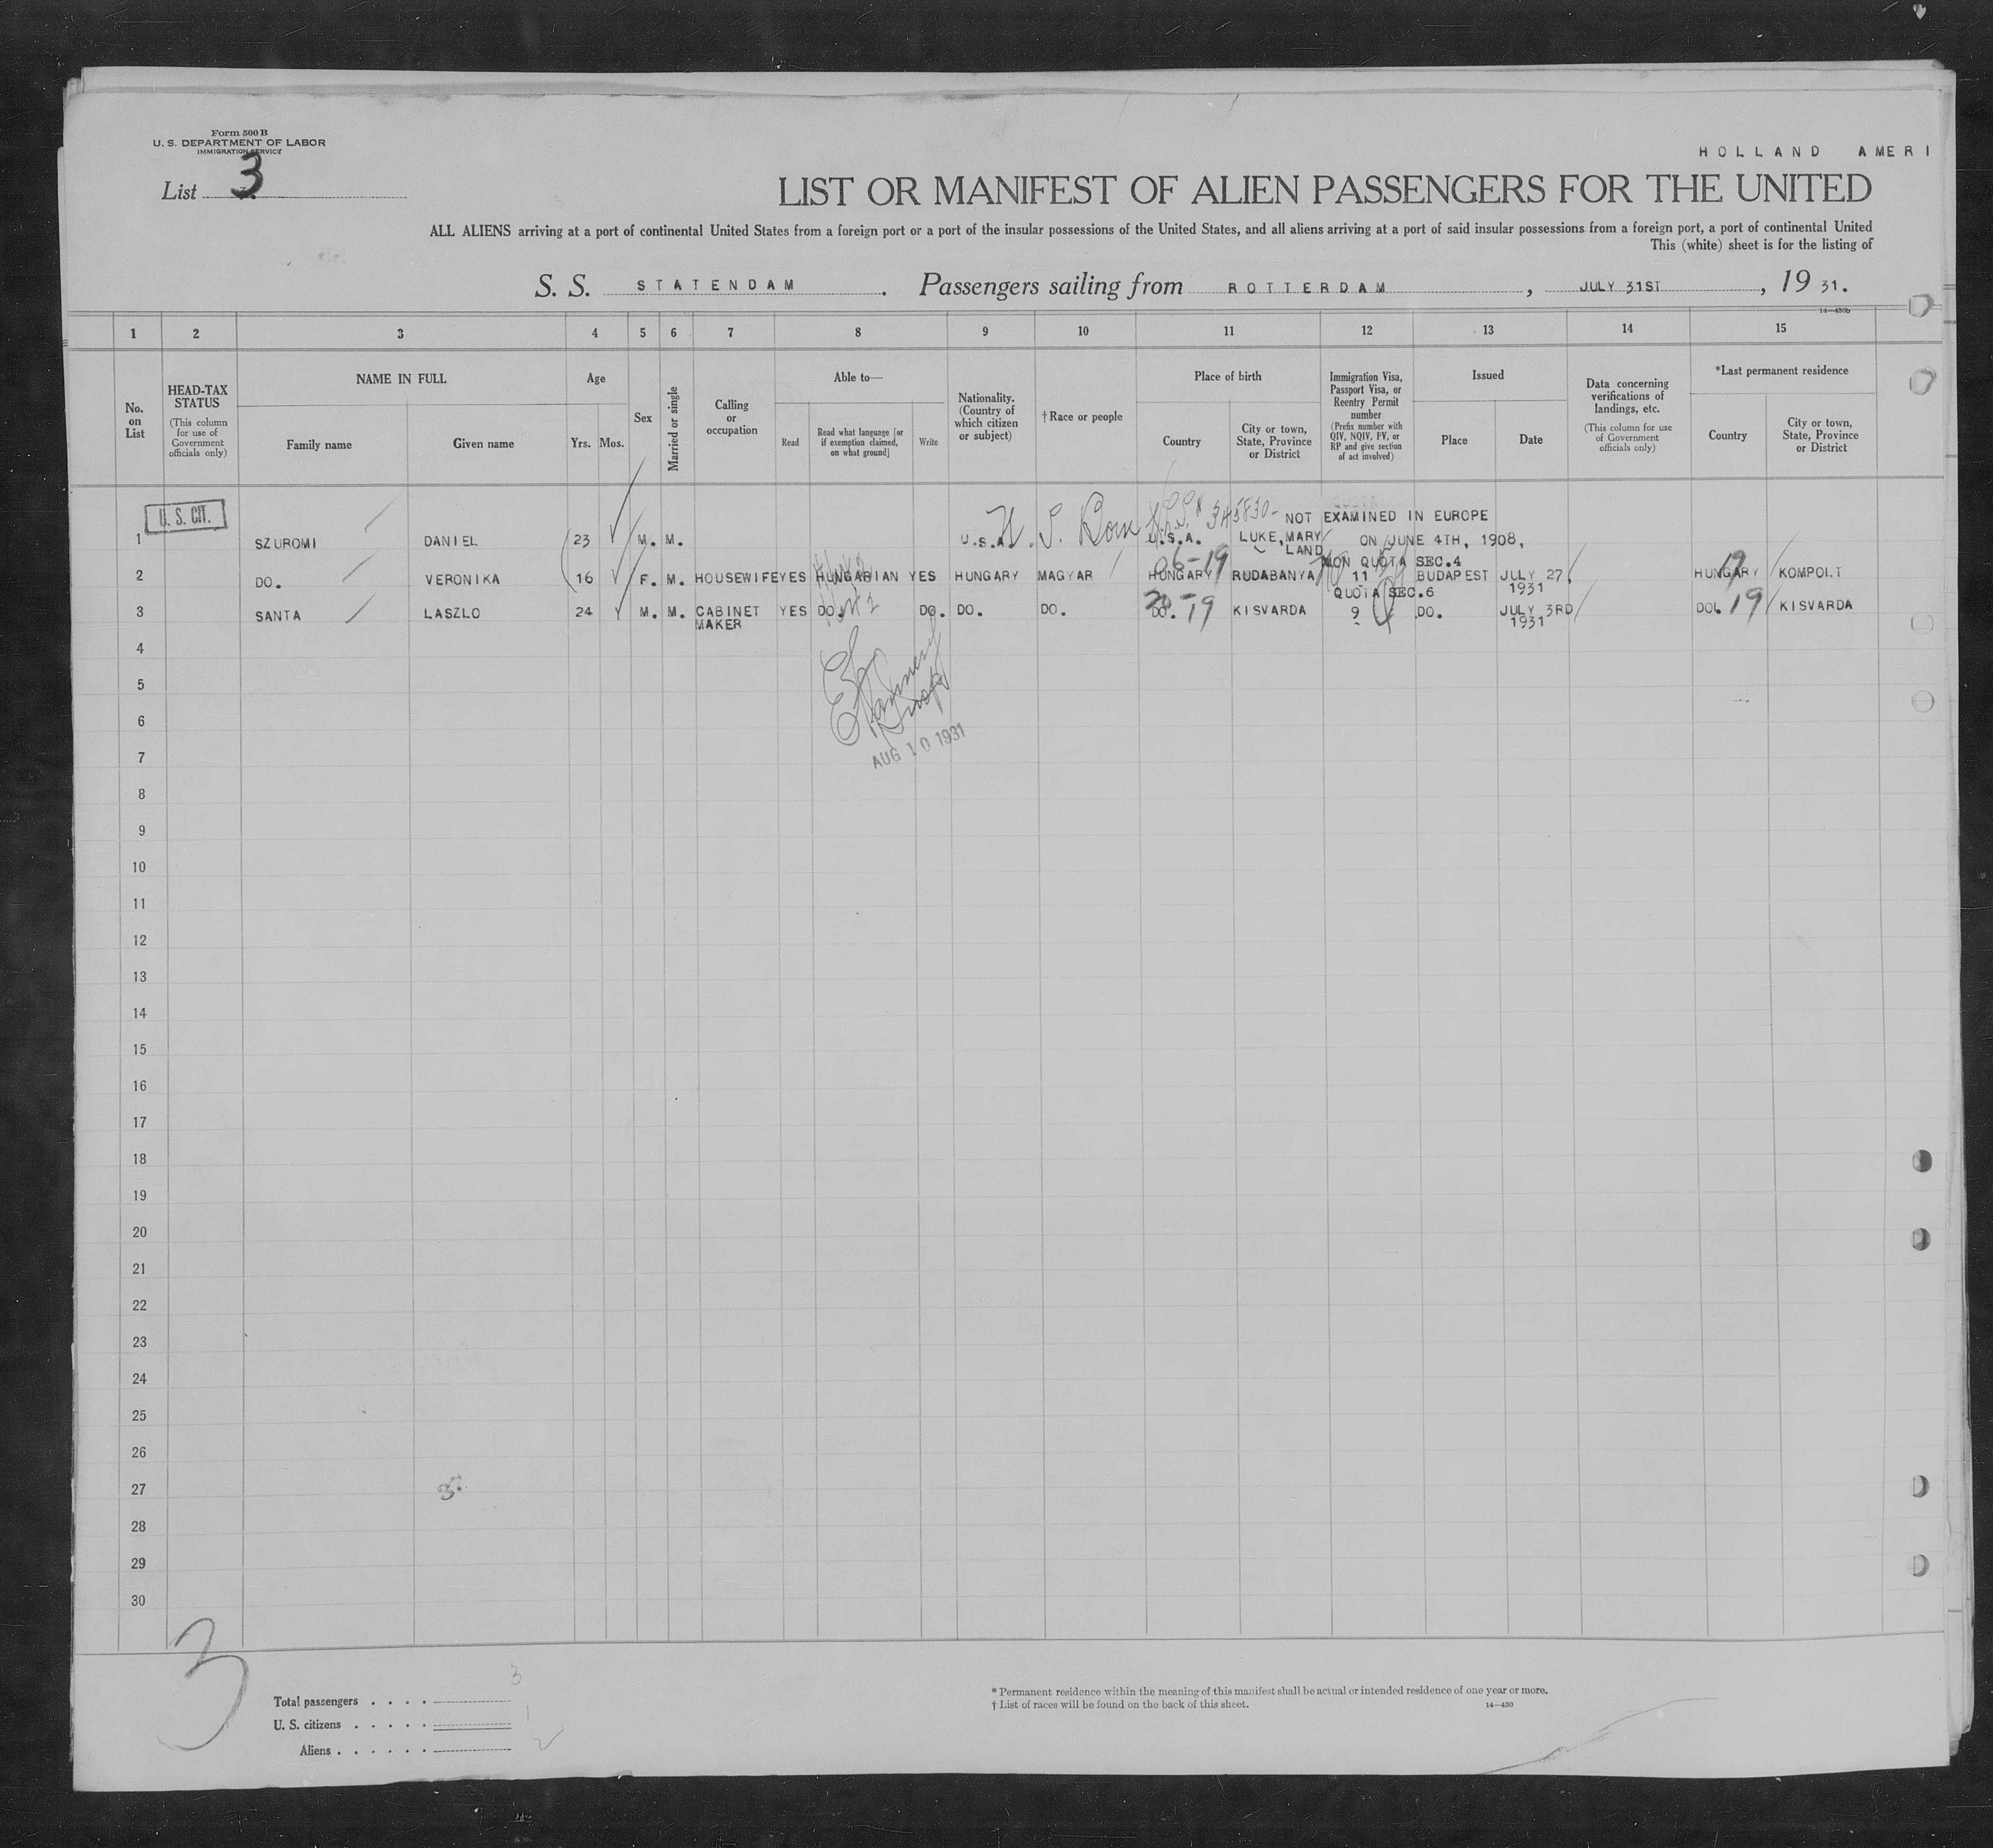 Form 500 B
U. S. DEPARTMENT OF LABOR
IMMIGRATION SERVICE
List 3
HOLLAND AMERI
LIST OR MANIFEST OF ALIEN PASSENGERS FOR THE UNITED
ALL ALIENS arriving at a port of continental United States from a foreign port or a port of the insular possessions of the United States, and all aliens arriving at a port of said insular possessions from a foreign port, a port of continental United
This (white) sheet is for the listing of
S. S. STATENDAM. Passengers sailing from ROTTERDAM, JULY 31ST, 19 31.
14—430b
1 2 3 4 5 6 7 8 9 10 11 12 13 14 15
No. on List
HEAD-TAX STATUS (This column for use of Government officials only)
NAME IN FULL
Family name Given name
Age
Yrs. Mos.
Sex
Married or single
Calling or occupation
Able to—
Read
Read what language [or if exemption claimed, on what ground]
Write
Nationality. (Country of which citizen or subject)
† Race or people
Place of birth
Country
City or town, State, Province or District
Immigration Visa, Passport Visa, or Reentry Permit number (Prefix number with QIV, NQIV, PV, or RP and give section of act involved)
Issued
Place Date
Data concerning verifications of landings, etc. (This column for use of Government officials only)
*Last permanent residence
Country
City or town, State, Province or District
U. S. CIT.
345830- NOT EXAMINED IN EUROPE
1 SZUROMI DANIEL 23 M. M. U.S.A. U. S. Born U.S.A. LUKE, MARY LAND ON JUNE 4TH, 1908,
06-19 NON QUOTA SEC.4
2 DO. VERONIKA 16 F. M. HOUSEWIFE YES HUNGARIAN YES HUNGARY MAGYAR HUNGARY RUDABANYA 11 BUDAPEST JULY 27, 1931 HUNGARY 19 KOMPOLT
QUOTA SEC.6
3 SANTA LASZLO 24 M. M. CABINET MAKER YES DO. DO. DO. DO. DO. 20-19 KISVARDA 9 DO. JULY 3RD 1931 DO. 19 KISVARDA
4
5
6
7
AUG 10 1931
8
9
10
11
12
13
14
15
16
17
18
19
20
21
22
23
24
25
26
27
28
29
30
3
Total passengers . . . . 3
U. S. citizens . . . . . 1
Aliens . . . . . . 2
* Permanent residence within the meaning of this manifest shall be actual or intended residence of one year or more.
† List of races will be found on the back of this sheet.
14—430